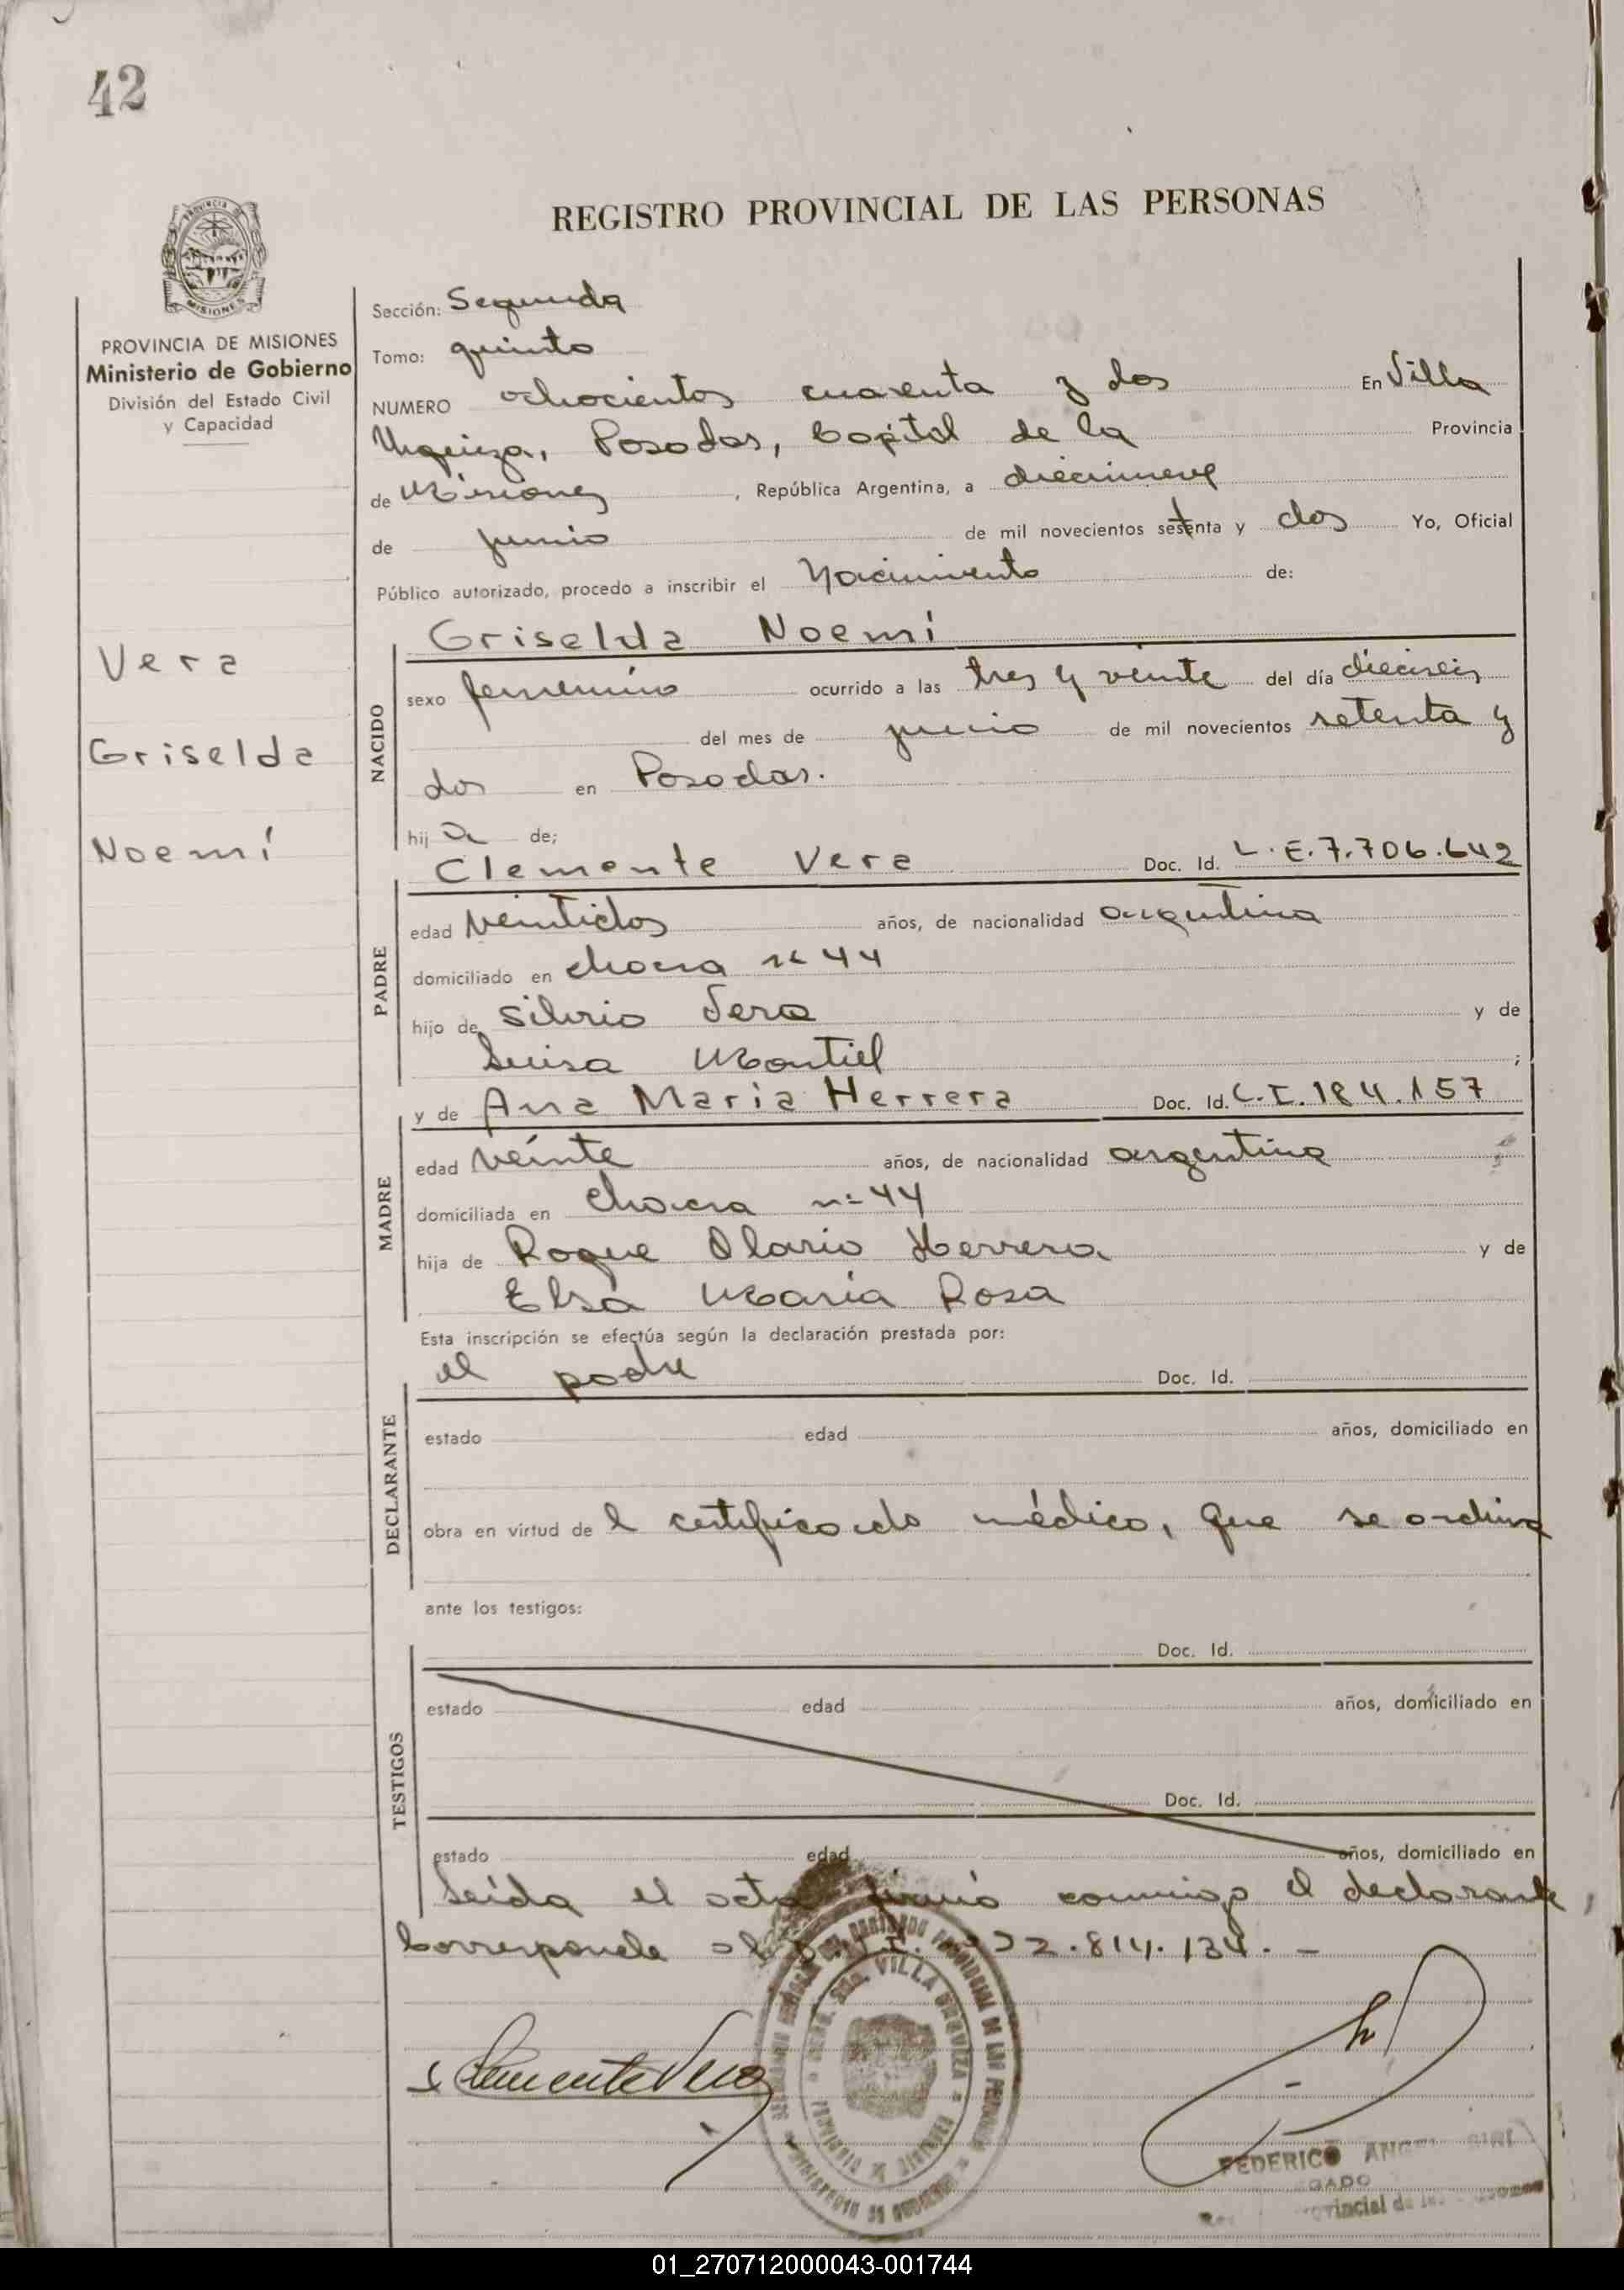 42
REGISTRO PROVINCIAL DE LAS PERSONAS
PROVINCIA DE MISIONES
Ministerio de Gobierno
División del Estado Civil
y Capacidad
Vera
Griselda
Noemí
Sección: Segunda
Tomo: quinto
NUMERO ochocientos cuarenta y dos En Villa
Urquiza, Posadas, Capital de la Provincia
de Misiones, República Argentina, a diecinueve
de junio de mil novecientos setenta y dos Yo, Oficial
Público autorizado, procedo a inscribir el Nacimiento de:
Griselda Noemí
NACIDO
sexo femenino ocurrido a las tres y veinte del día dieciseis
del mes de junio de mil novecientos setenta y
dos en Posadas.
hija de;
Clemente Vera Doc. Id. L.E.7.706.642
PADRE
edad veintidos años, de nacionalidad argentina
domiciliado en chacra nº 44
hijo de Silvio Vera y de
Luisa Montiel ;
y de Ana María Herrera Doc. Id. C.I.184.157
MADRE
edad veinte años, de nacionalidad argentina
domiciliada en chacra nº 44
hija de Roque Olario Herrera y de
Elsa María Rosa
Esta inscripción se efectúa según la declaración prestada por:
el padre Doc. Id.
DECLARANTE
estado edad años, domiciliado en
obra en virtud del certificado médico, que se archiva
ante los testigos:
Doc. Id.
TESTIGOS
estado edad años, domiciliado en
Doc. Id.
estado edad años, domiciliado en
Leída el acta firmó conmigo el declarante,
Corresponde al 22.814.134.-
Clemente Vera
VILLA URQUIZA
FEDERICO ANGEL
01_270712000043-001744